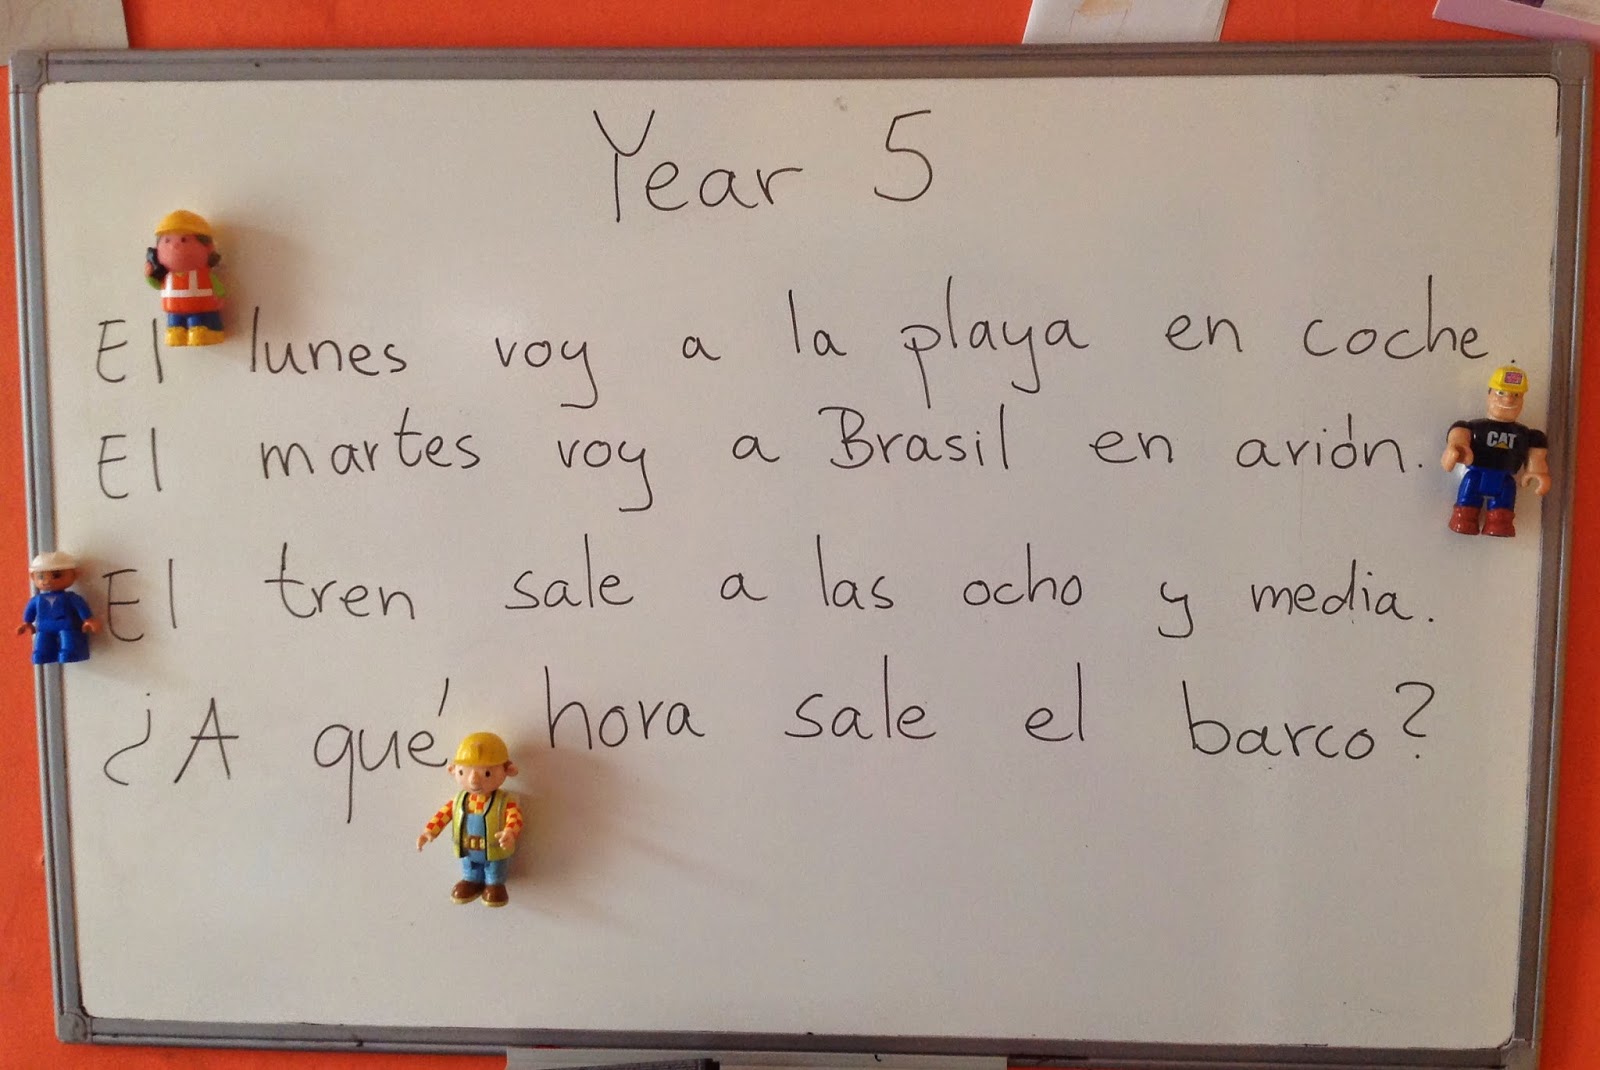 Year 5
El lunes voy a la playa en coche.
El martes voy a Brasil en avión.
CAT
El tren sale a las ocho y media.
¿A qué hora sale el barco?